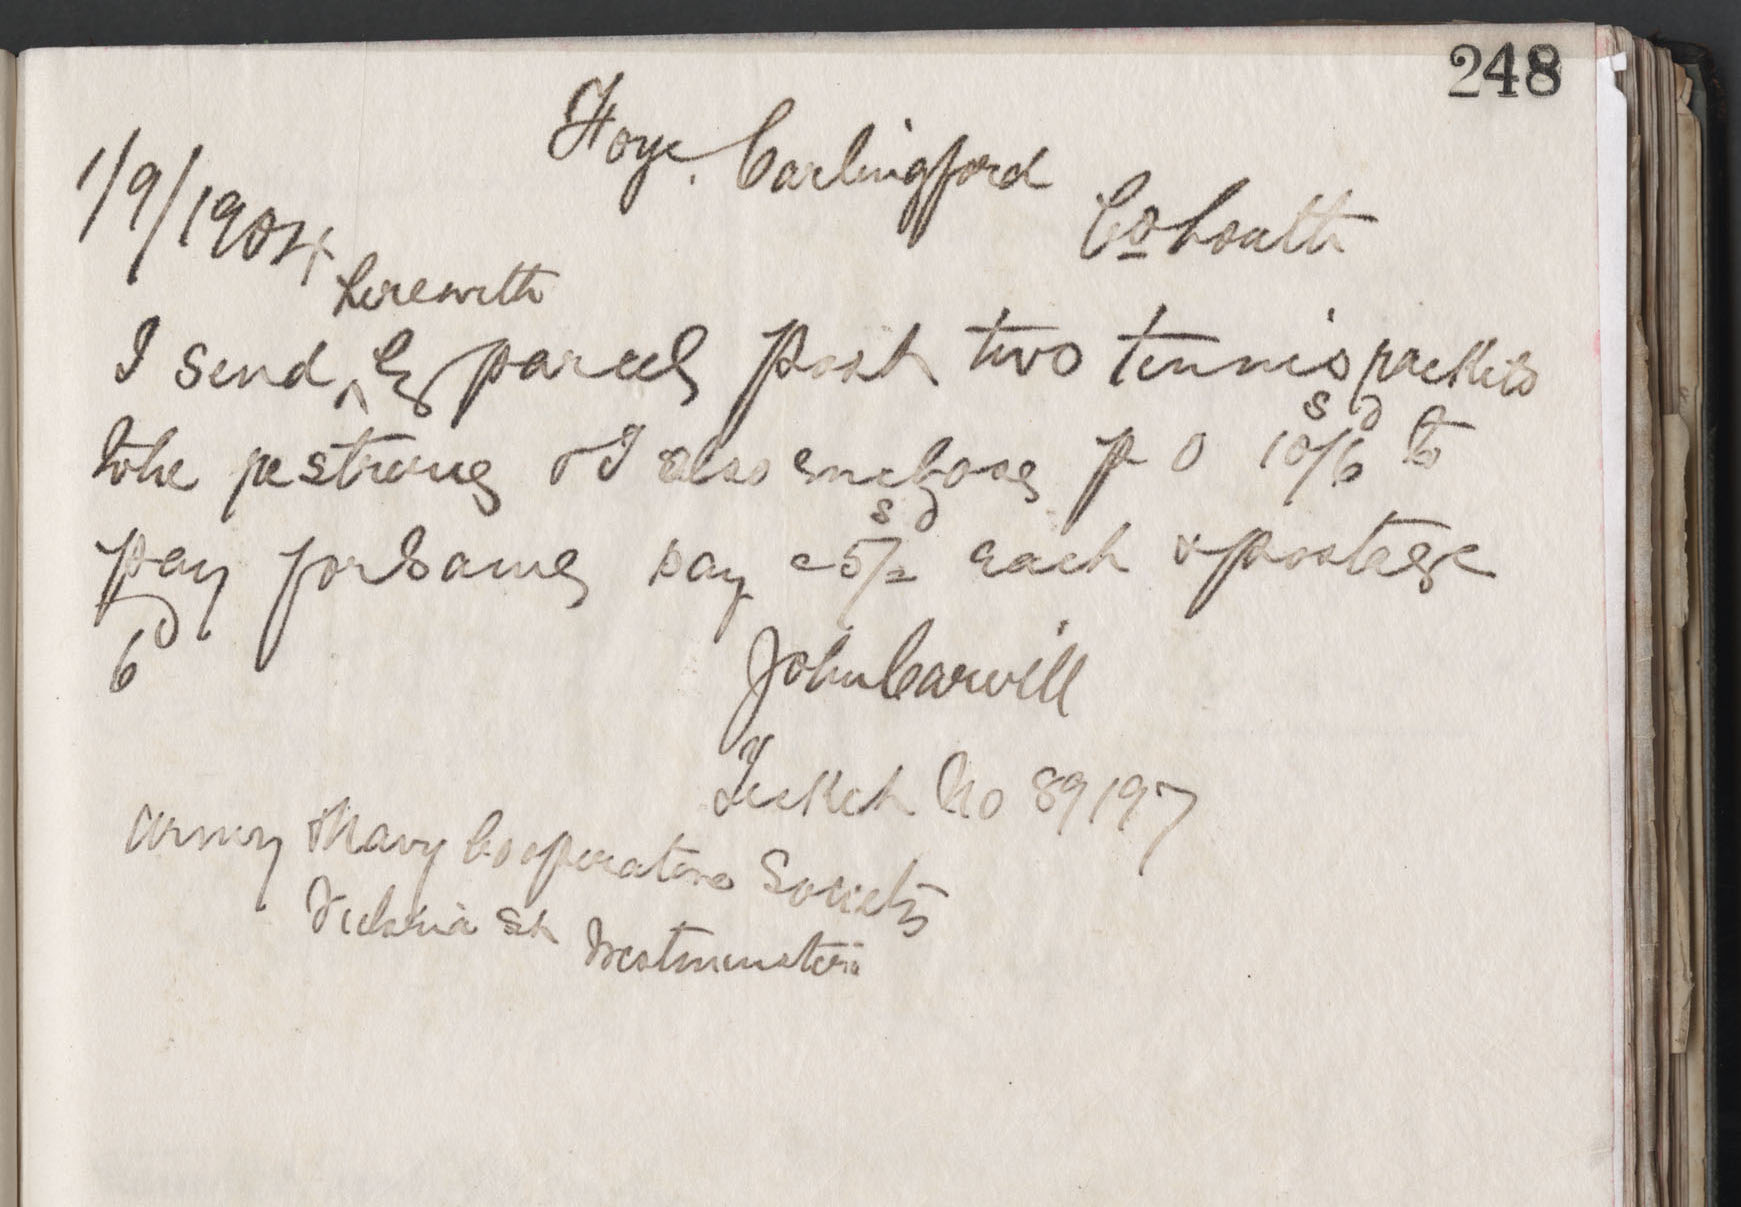 248
Foye, Carlingford
Co Louth
1/9/1904
herewith
I send ^ by parcel post two tennis rackets
to be restrung & I also enclose P O 10s/6d to
pay for same say 5s/= each & postage
6d
John Carvill
Ticket No 89197
Army & Navy Cooperative Society
Victoria St Westminster